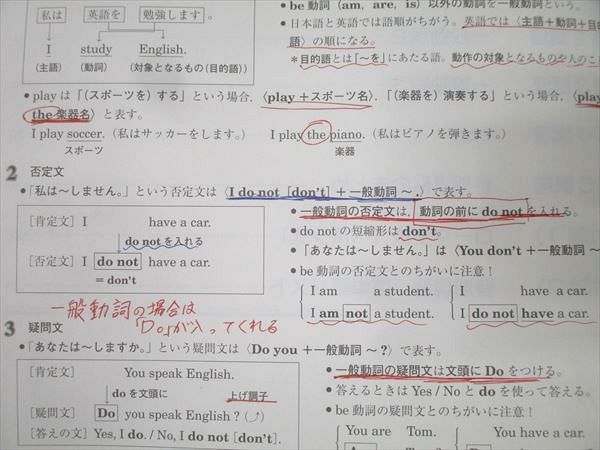 私は 英語を 勉強します。
I study English.
(主語) (動詞) (対象となるもの(目的語))
● be動詞 (am, are, is) 以外の動詞を一般動詞という。
● 日本語と英語では語順がちがう。英語では〈主語+動詞+目的
語〉の順になる。
*目的語とは「〜を」にあたる語。動作の対象となるものや人のこ
● playは「(スポーツを)する」という場合,〈play+スポーツ名〉,「(楽器を)演奏する」という場合,〈play
the 楽器名〉と表す。
I play soccer. (私はサッカーをします。) I play the piano. (私はピアノを弾きます。)
スポーツ 楽器
2 否定文
●「私は〜しません。」という否定文は〈I do not [don't] +一般動詞 〜.〉で表す。
[肯定文] I have a car.
do notを入れる
[否定文] I do not have a car.
= don't
● 一般動詞の否定文は,動詞の前に do not を入れる。
● do notの短縮形は don't。
●「あなたは〜しません。」は〈You don't +一般動詞 〜
● be動詞の否定文とのちがいに注意!
I am a student. I have a car.
I am not a student. I do not have a car.
一般動詞の場合は
「Do」が入ってくれる
3 疑問文
●「あなたは〜しますか。」という疑問文は〈Do you +一般動詞 〜?〉で表す。
[肯定文] You speak English.
doを文頭に 上げ調子
[疑問文] Do you speak English?
[答えの文] Yes, I do. / No, I do not [don't].
● 一般動詞の疑問文は文頭に Do をつける。
● 答えるときは Yes / No と do を使って答える。
● be動詞の疑問文とのちがいに注意!
You are Tom. You have a car.